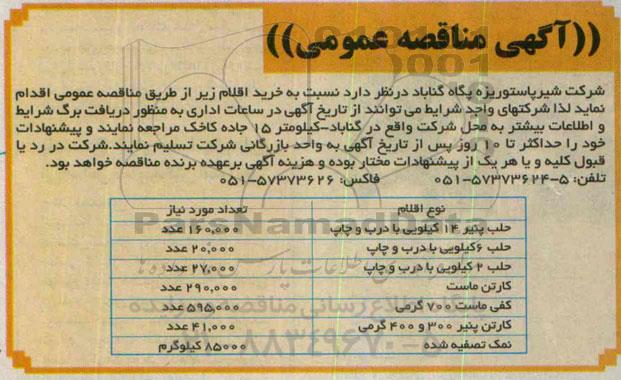 ((آگهی مناقصه عمومی))
شرکت شیرپاستوریزه پگاه گناباد درنظر دارد نسبت به خرید اقلام زیر از طریق مناقصه عمومی اقدام
نماید لذا شرکتهای واجد شرایط می توانند از تاریخ آگهی در ساعات اداری به منظور دریافت برگ شرایط
و اطلاعات بیشتر به محل شرکت واقع در گناباد-کیلومتر ۱۵ جاده کاخک مراجعه نمایند و پیشنهادات
خود را حداکثر تا ۱۰ روز پس از تاریخ آگهی به واحد بازرگانی شرکت تسلیم نمایند.شرکت در رد یا
قبول کلیه و یا هر یک از پیشنهادات مختار بوده و هزینه آگهی برعهده برنده مناقصه خواهد بود.
تلفن: ۵-۵۷۳۷۳۶۲۴-۰۵۱ فاکس: ۵۷۳۷۳۶۲۶-۰۵۱
نوع اقلام تعداد مورد نیاز
حلب پنیر ۱۴ کیلویی با درب و چاپ ۱۶۰,۰۰۰ عدد
حلب ۶کیلویی با درب و چاپ ۲۰,۰۰۰ عدد
حلب ۲ کیلویی با درب و چاپ ۲۷,۰۰۰ عدد
کارتن ماست ۲۹۰,۰۰۰ عدد
کفی ماست ۷۰۰ گرمی ۵۹۵,۰۰۰ عدد
کارتن پنیر ۳۰۰ و ۴۰۰ گرمی ۴۱,۰۰۰ عدد
نمک تصفیه شده ۸۵۰۰۰ کیلوگرم
ParsNamadData
۰۲۱-۸۸۳۴۹۶۷۰